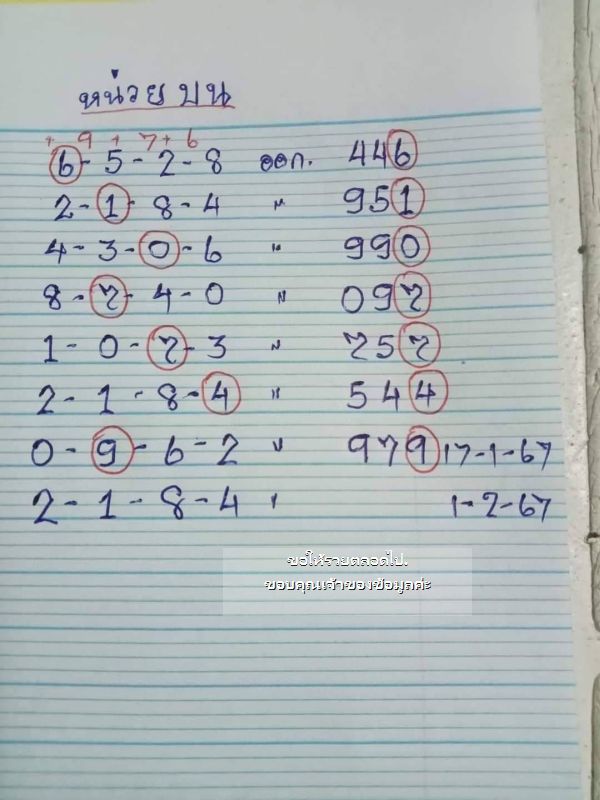 หน่วย บน
+ 9 + 7 + 6
6 - 5 - 2 - 8 ออก. 446
2 - 1 - 8 - 4 " 951
4 - 3 - 0 - 6 " 990
8 - 7 - 4 - 0 " 097
1 - 0 - 7 - 3 " 757
2 - 1 - 8 - 4 " 544
0 - 9 - 6 - 2 " 979 17-1-67
2 - 1 - 8 - 4 ' 1-2-67
ขอให้รวยตลอดไป.
ขอบคุณเจ้าของข้อมูลค่ะ